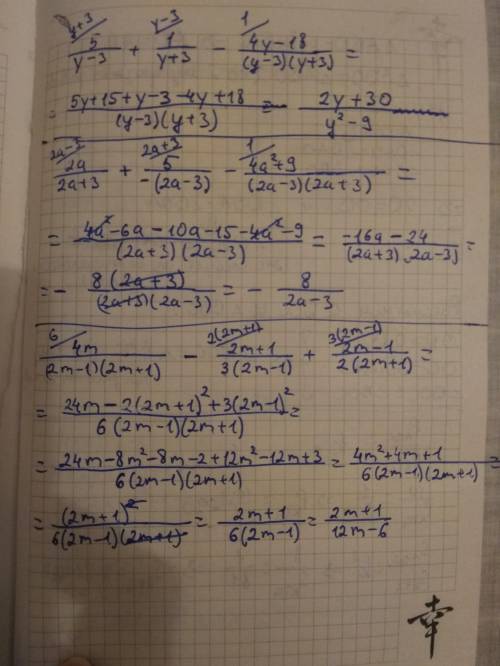 y+3 y-3 1
5/(y-3) + 1/(y+3) - (4y-18)/((y-3)(y+3)) =
= (5y+15+y-3-4y+18)/((y-3)(y+3)) = (2y+30)/(y²-9)
2a-3 2a+3 1
2a/(2a+3) + 5/(-(2a-3)) - (4a²+9)/((2a-3)(2a+3)) =
= (4a²-6a-10a-15-4a²-9)/((2a+3)(2a-3)) = (-16a-24)/((2a+3)(2a-3)) =
= - 8(2a+3)/((2a+3)(2a-3)) = - 8/(2a-3)
6 2(2m+1) 3(2m-1)
4m/((2m-1)(2m+1)) - (2m+1)/(3(2m-1)) + (2m-1)/(2(2m+1)) =
= (24m-2(2m+1)²+3(2m-1)²)/(6(2m-1)(2m+1)) =
= (24m-8m²-8m-2+12m²-12m+3)/(6(2m-1)(2m+1)) = (4m²+4m+1)/(6(2m-1)(2m+1)) =
= (2m+1)²/(6(2m-1)(2m+1)) = (2m+1)/(6(2m-1)) = (2m+1)/(12m-6)
幸